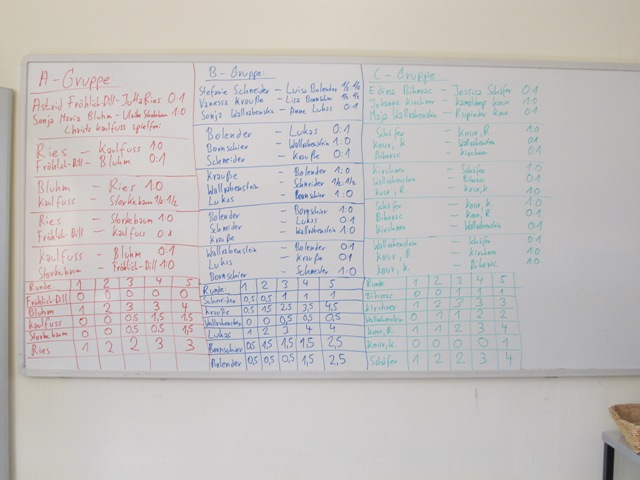 A - Gruppe:
Astrid Fröhlich-Dill - Jutta Ries 0:1
Sonja Maria Bluhm - Ulrike Storkebaum 1:0
Christa Kaulfuss spielfrei
Ries - Kaulfuss 1:0
Fröhlich-Dill - Bluhm 0:1
Bluhm - Ries 1:0
Kaulfuss - Storkebaum 1/2:1/2
Ries - Storkebaum 1:0
Fröhlich-Dill - Kaulfuss 0:1
Kaulfuss - Bluhm 0:1
Storkebaum - Fröhlich-Dill 1:0
Runde: 1 2 3 4 5
Fröhlich-Dill 0 0 0 0 0
Bluhm 1 2 3 3 4
Kaulfuss 0 0 0,5 1,5 1,5
Storkebaum 0 0 0,5 0,5 1,5
Ries 1 2 2 3 3
B - Gruppe:
Stefanie Schneider - Luisa Bolender 1/2:1/2
Vanessa Krauße - Lisa Bornshier 1/2:1/2
Sonja Wallrabenstein - Anne Lukas 0:1
Bolender - Lukas 0:1
Bornschier - Wallrabenstein 1:0
Schneider - Krauße 0:1
Krauße - Bolender 1:0
Wallrabenstein - Schneider 1/2:1/2
Lukas - Bornschier 1:0
Bolender - Bornschier 1:0
Schneider - Lukas 0:1
Krauße - Wallrabenstein 1:0
Wallrabenstein - Bolender 0:1
Lukas - Krauße 0:1
Bornschier - Schneider 1:0
Runde: 1 2 3 4 5
Schneider 0,5 0,5 1 1 1
Krauße 0,5 1,5 2,5 3,5 4,5
Wallrabenstein 0 0 0,5 0,5 0,5
Lukas 1 2 3 4 4
Bornschier 0,5 1,5 1,5 1,5 2,5
Bolender 0,5 0,5 0,5 1,5 2,5
C - Gruppe:
Edona Bihorac - Jessica Schäfer 0:1
Johanna Kirchner - Kamaldeep Kour 1:0
Maja Wallrabenstein - Rupinder Kour 0:1
Schäfer - Kour, R. 1:0
Kour, K. - Wallrabenstein 0:1
Bihorac - Kirchner 0:1
Kirchner - Schäfer 1:0
Wallrabenstein - Bihorac 0:1
Kour, R. - Kour, K. 1:0
Schäfer - Kour, K. 1:0
Bihorac - Kour, R. 0:1
Kirchner - Wallrabenstein 0:1
Wallrabenstein - Schäfer 0:1
Kour, R. - Kirchner 1:0
Kour, K. - Bihorac 1:0
Runde: 1 2 3 4 5
Bihorac 0 0 1 1 1
Kirchner 1 2 3 3 3
Wallrabenstein 0 1 1 2 2
Kour, R. 1 1 2 3 4
Kour, K. 0 0 0 0 1
Schäfer 1 2 2 3 4